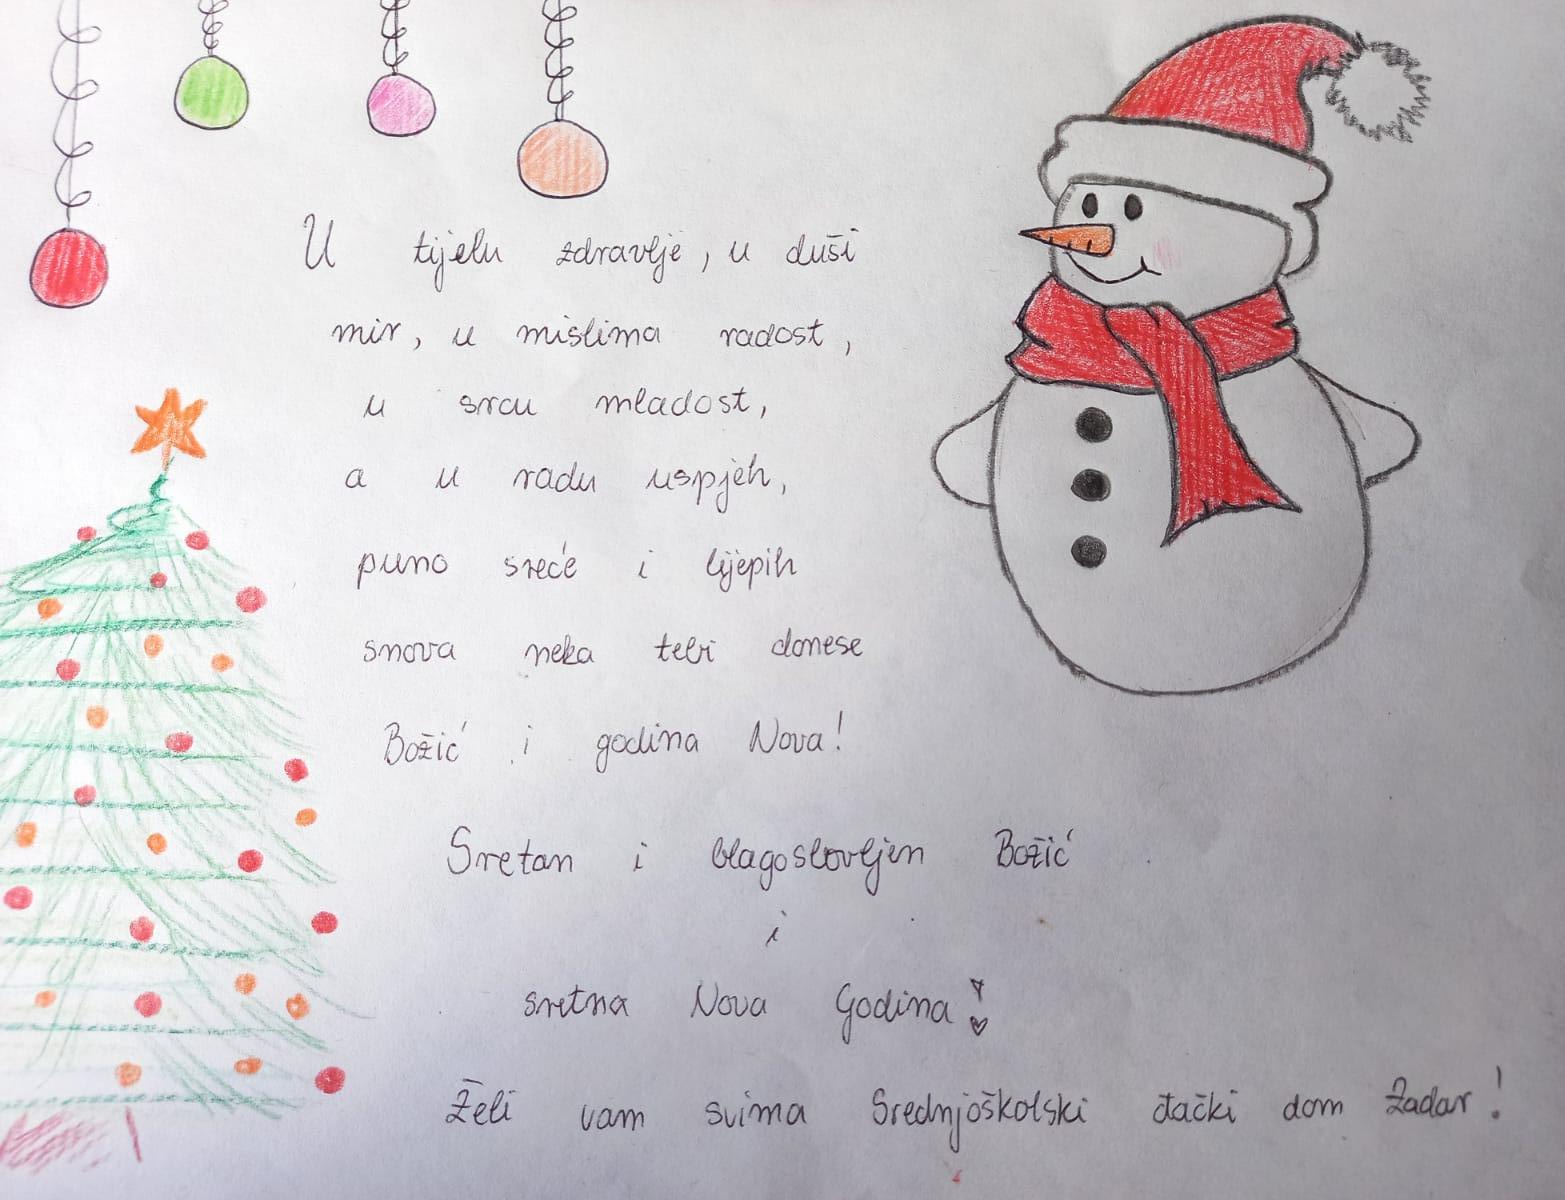 U tijelu zdravlje, u duši
mir, u mislima radost,
u srcu mladost,
a u radu uspjeh,
puno sreće i lijepih
snova neka tebi donese
Božić i godina Nova!
Sretan i blagoslovljen Božić
i
sretna Nova Godina!
Želi vam svima Srednjoškolski đački dom Zadar!